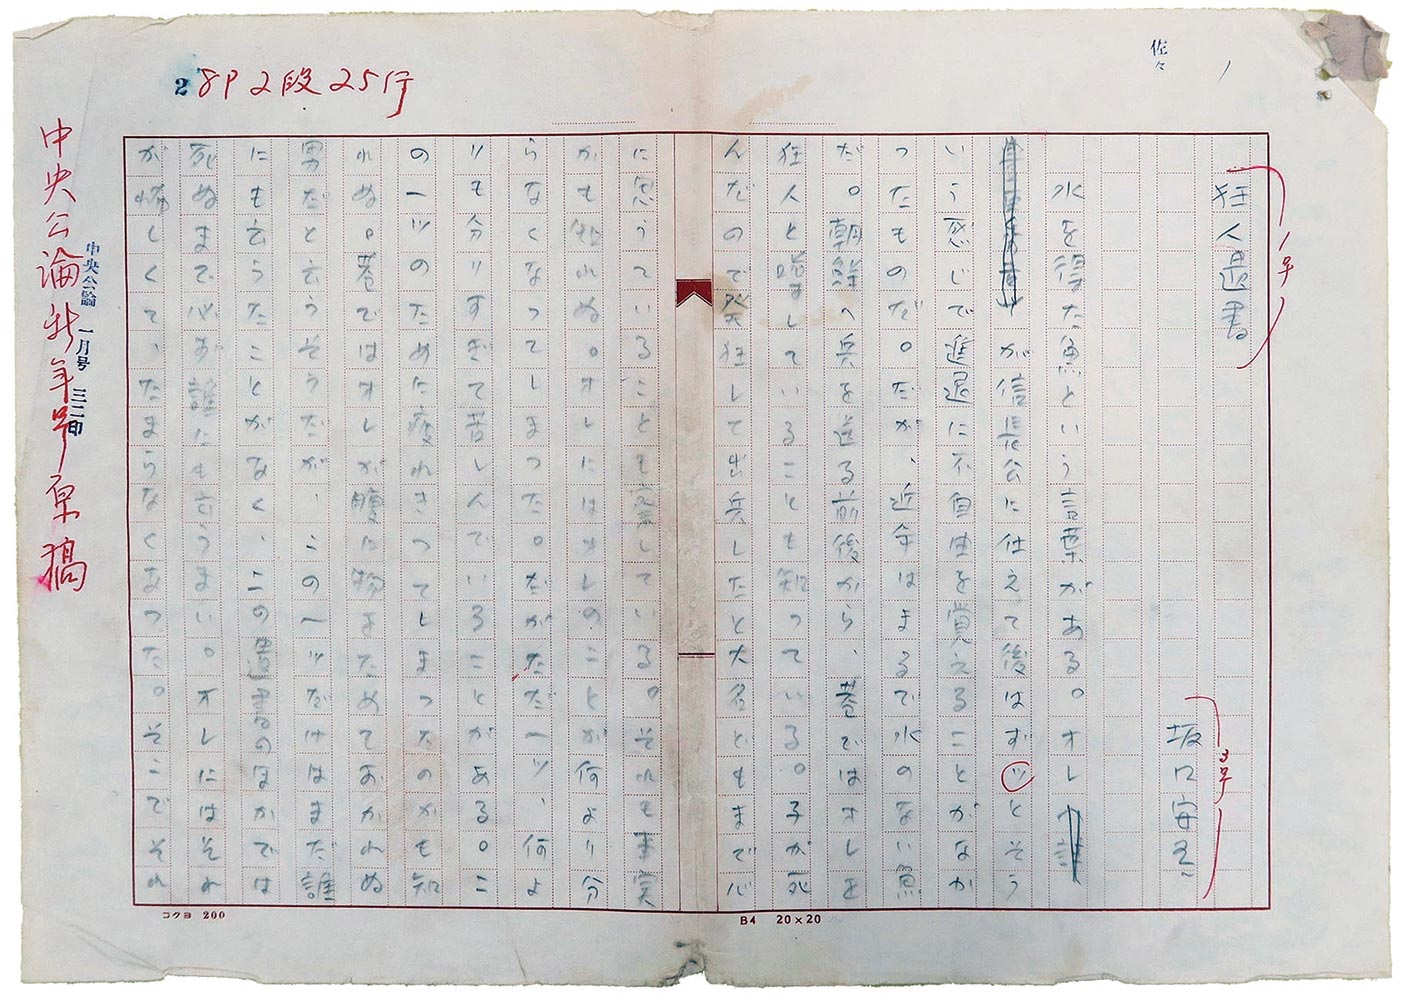 佐々
1
狂人遺書
1号
坂口安吾
3号
水を得た魚という言葉がある。オレ
が信長公に仕えて後はずッとそう
いう感じで進退に不自由を覚えることがなか
ったものだ。だが、近年はまるで水のない魚
だ。朝鮮へ兵を送る前後から、巷ではオレを
狂人と噂していることも知っている。子が死
んだので発狂して出兵したと大名どもまで心
に思うていることも察している。それも事実
かも知れぬ。オレにはオレのことが何より分
らなくなってしまった。だがただ一ツ、何よ
りも分りすぎて苦しんでいることがある。こ
の一ツのために疲れきってしまったのかも知
れぬ。巷ではオレが腹に物をためておかれぬ
男だと云うそうだが、この一ツだけはまだ誰
にも云うたことがなく、この遺書のほかでは
死ぬまで心お誰にも云うまい。オレにはそれ
が悲しくて、たまらなくあった。そこでそれ
2
8P2段25行
中央公論 一月号 三二印
中央公論新年号原稿
コクヨ 200
B4 20×20